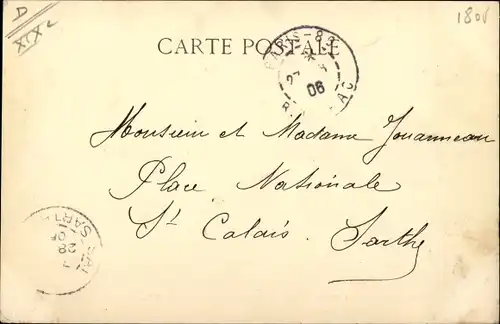 D
XIXe
180v
CARTE POSTALE
PARIS-88
06
Monsieur et Madame Jouanneau
Place Nationale
St Calais. Sarthe
SARTHE